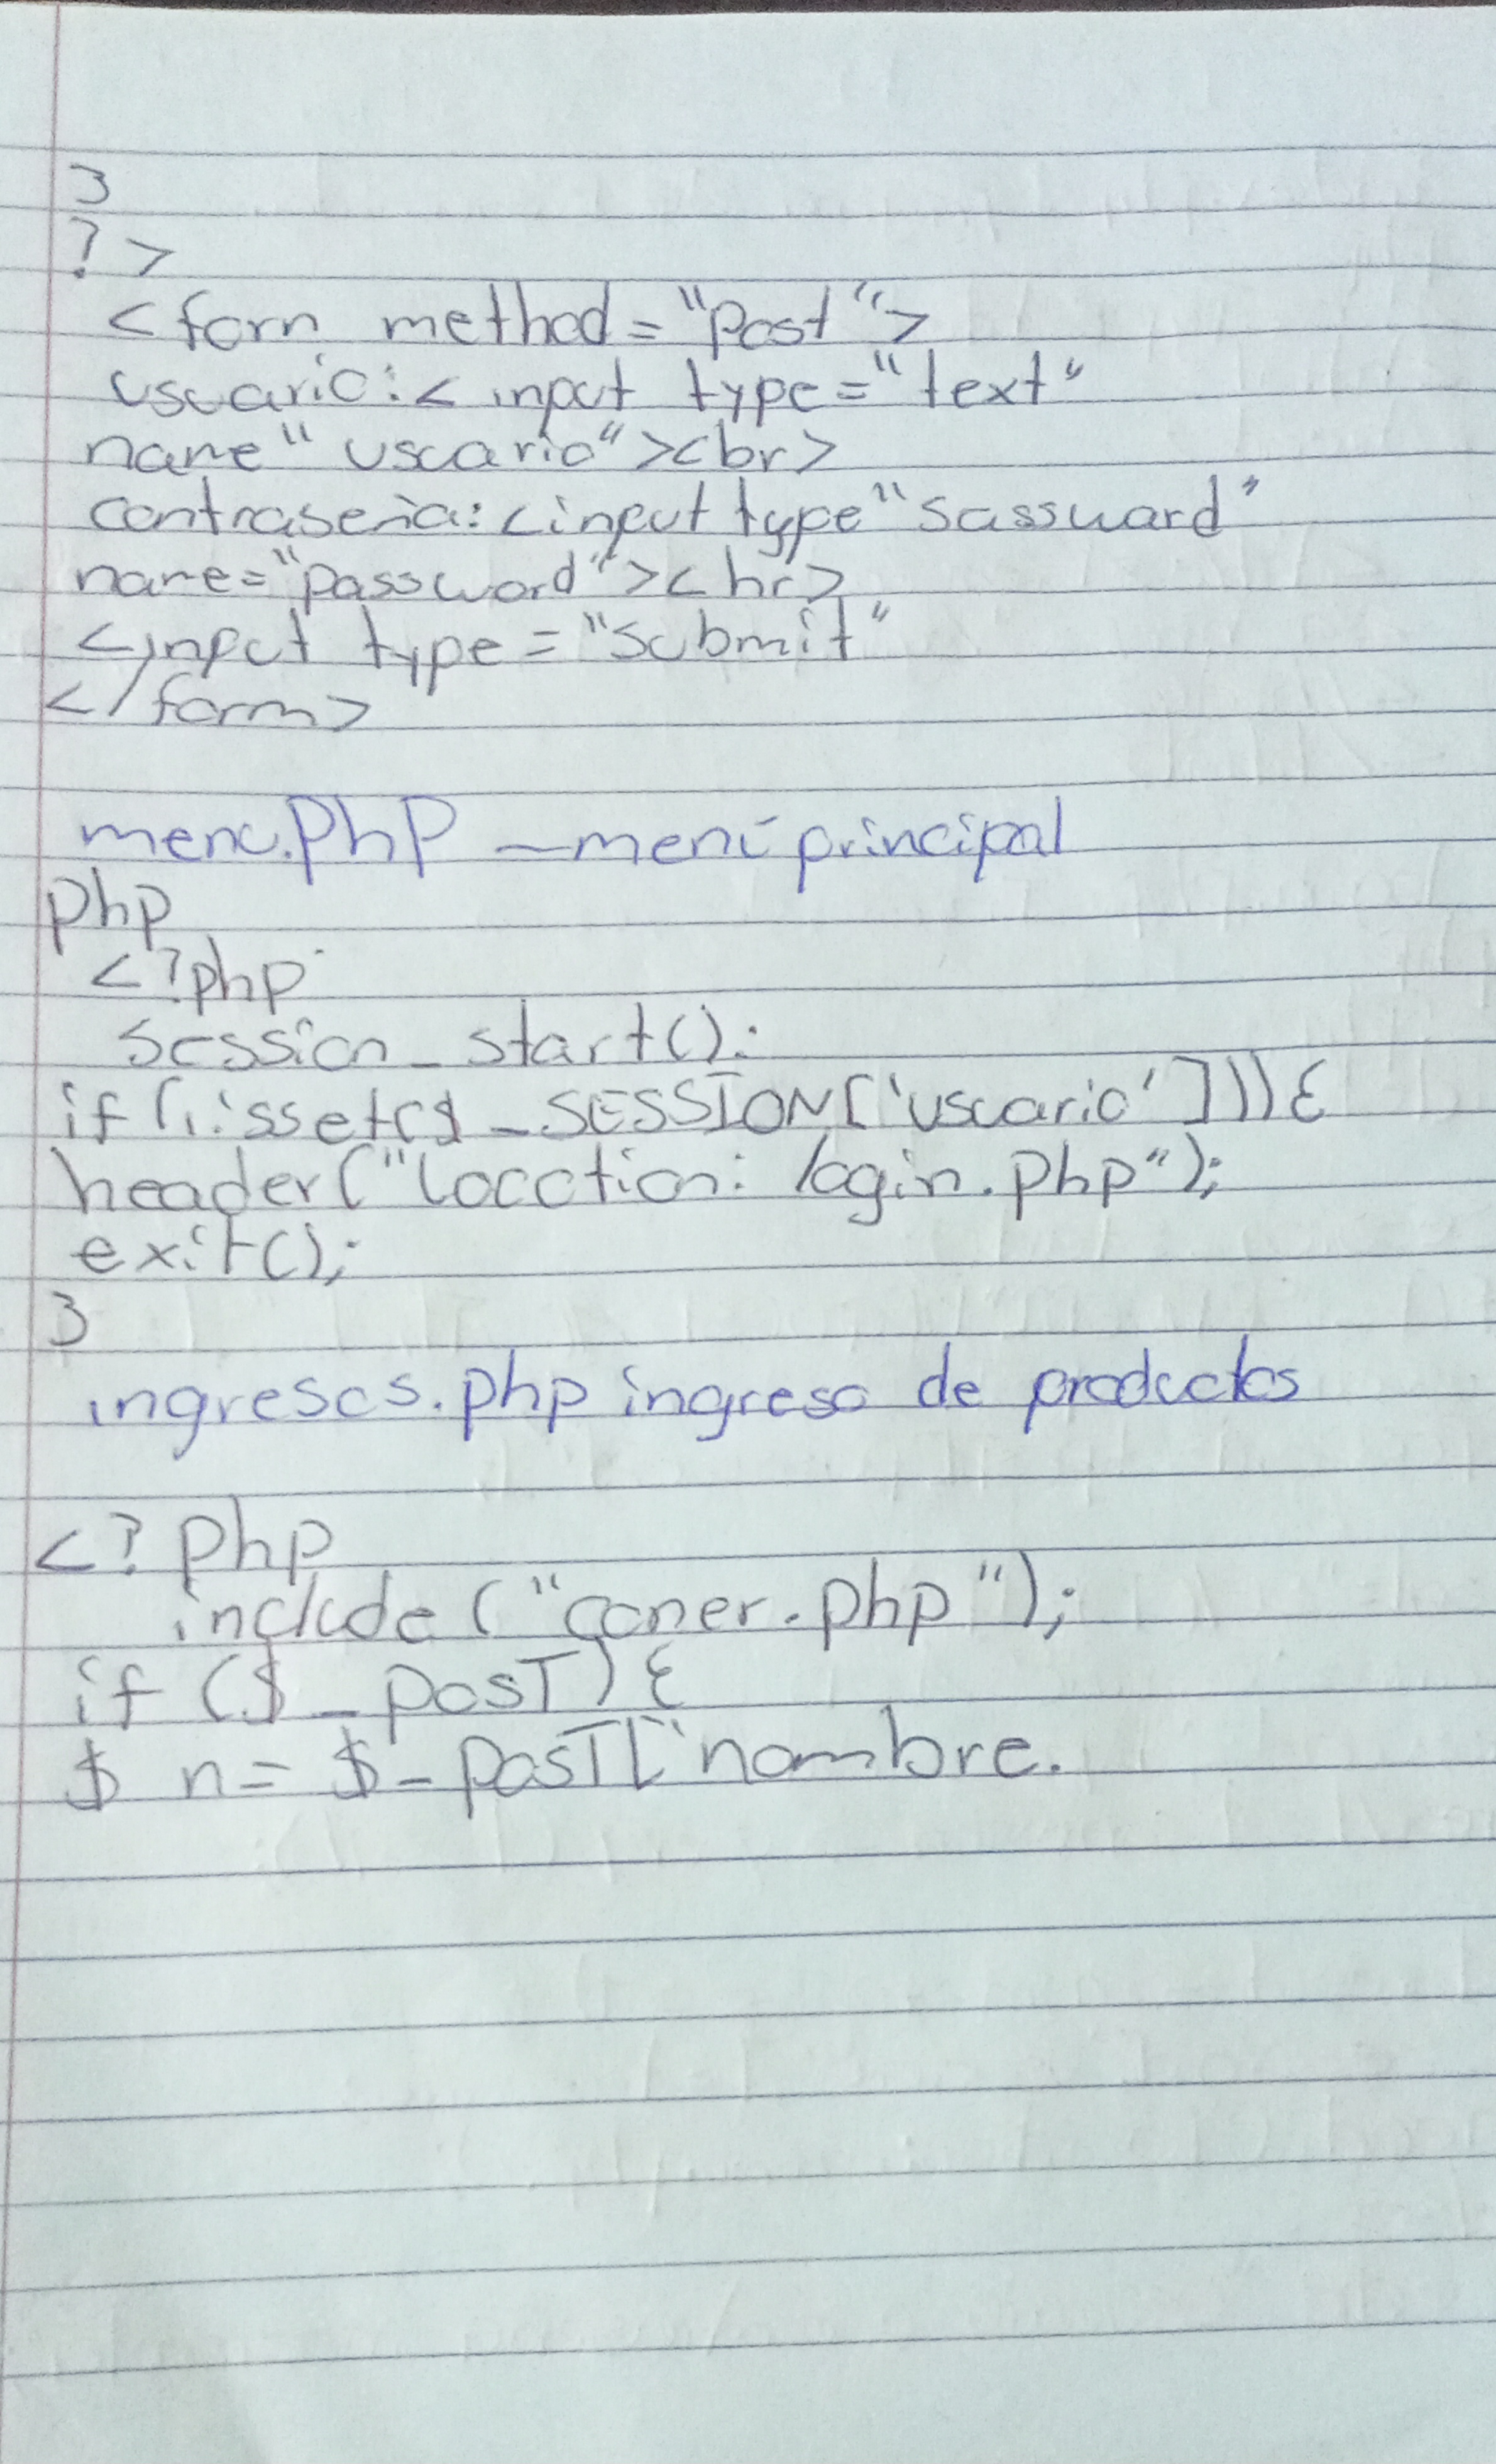 }
?>
<form method="post">
usuario:<input type="text"
name"usuario"><br>
contraseña:<input type"sassword"
name="password"><hr>
<input type="submit"
</form>
menu.php – menú principal
php
<?php
session_start():
if (!isset($_SESSION['usuario'])){
header("locction: login.php");
exit();
}
ingresos.php ingreso de productos
<?php
include("coner.php");
if ($_posT){
$n=$_posT["nombre.